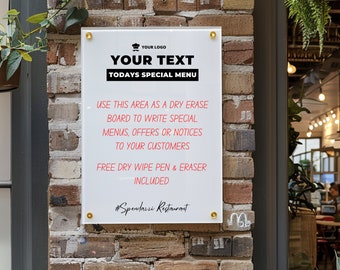 YOUR LOGO
YOUR TEXT
TODAYS SPECIAL MENU
USE THIS AREA AS A DRY ERASE
BOARD TO WRITE SPECIAL
MENUS, OFFERS OR NOTICES
TO YOUR CUSTOMERS
FREE DRY WIPE PEN & ERASER
INCLUDED
#Spendazzi Restaurant